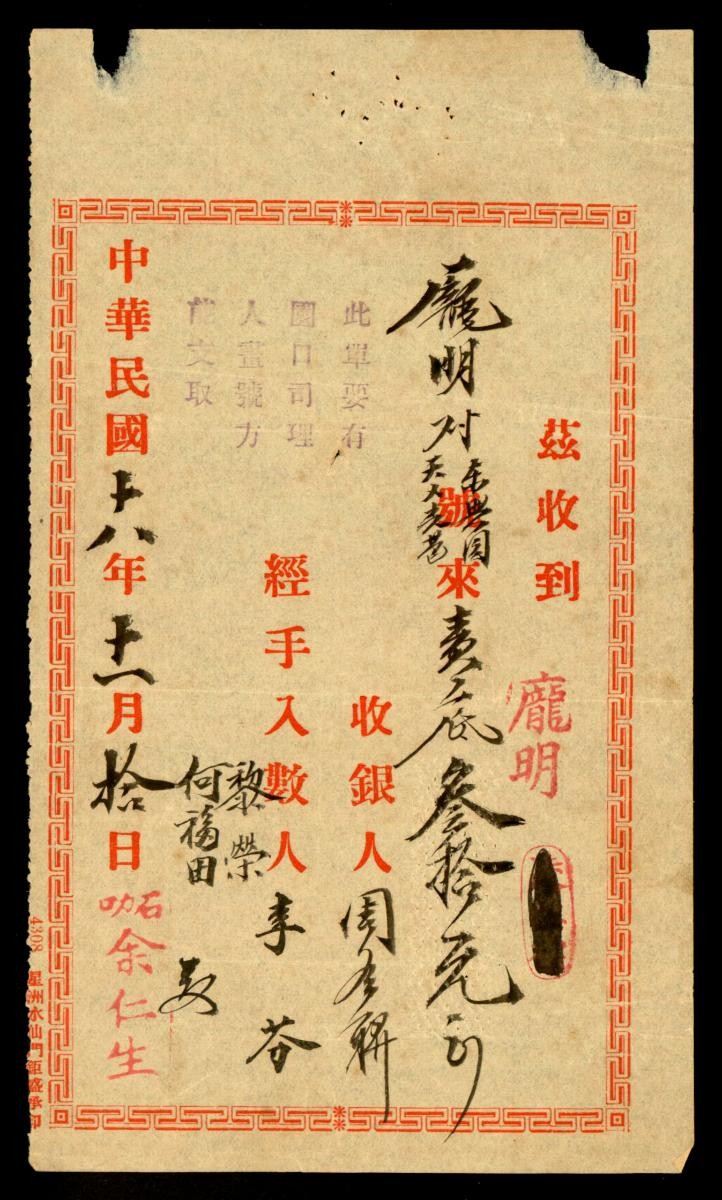 茲收到
龐明
龐明對號來責底叁拾元正
東興園
收銀人周有聯
此單要有
園口司理
人畫號方
能支取
經手入數人李芬
黎榮
何福田
中華民國十八年十一月拾日
咖石余仁生
4308 星洲水仙門鉅盛承印